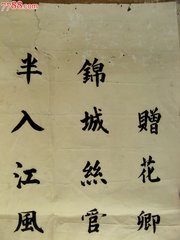 7788.com
贈花卿
錦城絲官
半入江風